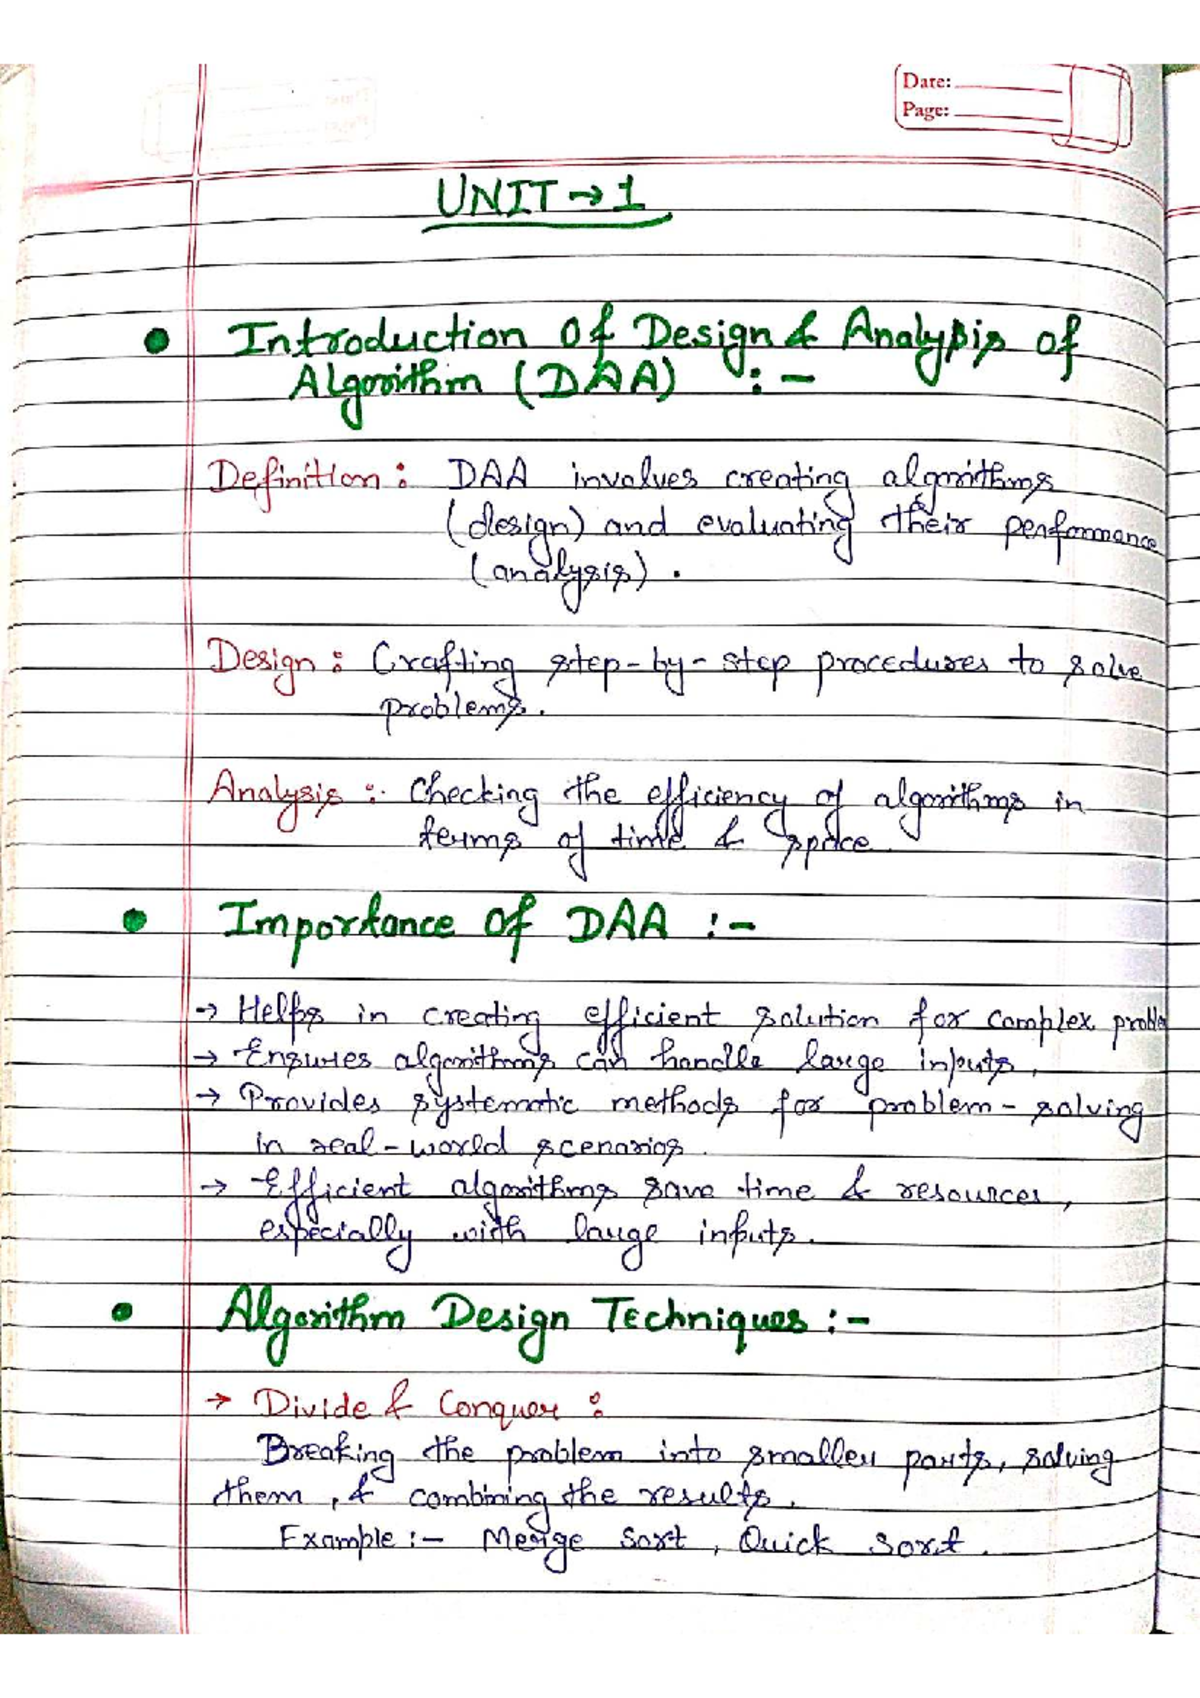 Date:
Page:
UNIT → 1
• Introduction Of Design & Analysis of
Algorithm (DAA) :-
Definition: DAA involves creating algorithms
(design) and evaluating their performance
(analysis).
Design: Crafting step-by-step procedures to solve
problems.
Analysis: Checking the efficiency of algorithms in
terms of time & space.
• Importance Of DAA :-
→ Helps in creating efficient solution for complex proble
→ Ensures algorithms can handle large inputs,
→ Provides systematic methods for problem-solving
in real-world scenarios.
→ Efficient algorithms save time & resources,
especially with large inputs.
• Algorithm Design Techniques :-
→ Divide & Conquer :
Breaking the problem into smaller parts, solving
them, & combining the results.
Example :- Merge Sort, Quick Sort.